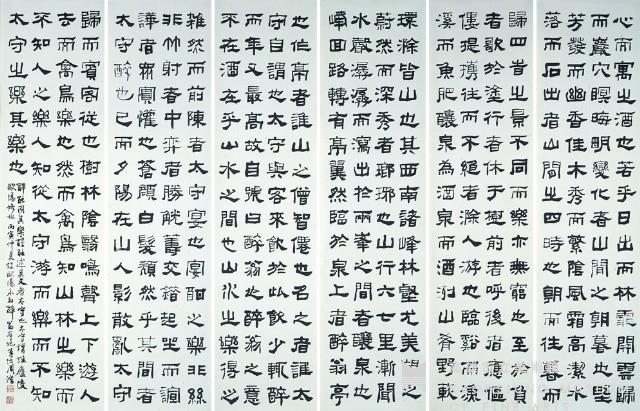 環滁皆山也其西南諸峰林壑尤美望之
蔚然而深秀者琅琊也山行六七里漸聞
水聲潺潺而瀉出於兩峰之間者釀泉也
峰回路轉有亭翼然臨於泉上者醉翁亭
也作亭者誰山之僧智僊也名之者誰太
守自謂也太守與客來飲於此飲少輒醉
而年又最高故自號曰醉翁也醉翁之意
不在酒在乎山水之間也山水之樂得之
心而寓之酒也若乎日出而林霏開雲歸
而巖穴暝晦明變化者山間之朝暮也埜
芳發而幽香佳木秀而繁陰風霜高潔水
落而石出者山間之四時也朝而往暮而
歸四時之景不同而樂亦無窮也至於負
者歌於塗行者休于樹前者呼後者應傴
僂提攜往而不絕者滁人游也臨溪而漁
溪而魚肥釀泉為酒泉而酒洌山肴野蔌
雜然而前陳者太守宴也宴酣之樂非絲
非竹射者中弈者勝觥籌交錯起坐而諠
譁者眾賓懽也蒼顏白髮頹然乎其間者
太守醉也已而夕陽在山人影散亂太守
歸而賓客從也樹林陰翳鳴聲上下遊人
去而禽鳥樂也然而禽鳥知山林之樂而
不知人之樂人知從太守游而樂而不知
太守之樂其樂也
醉能同其樂醒能述其文者太守也太守謂誰廬陵
歐陽修也 丙寅仲夏